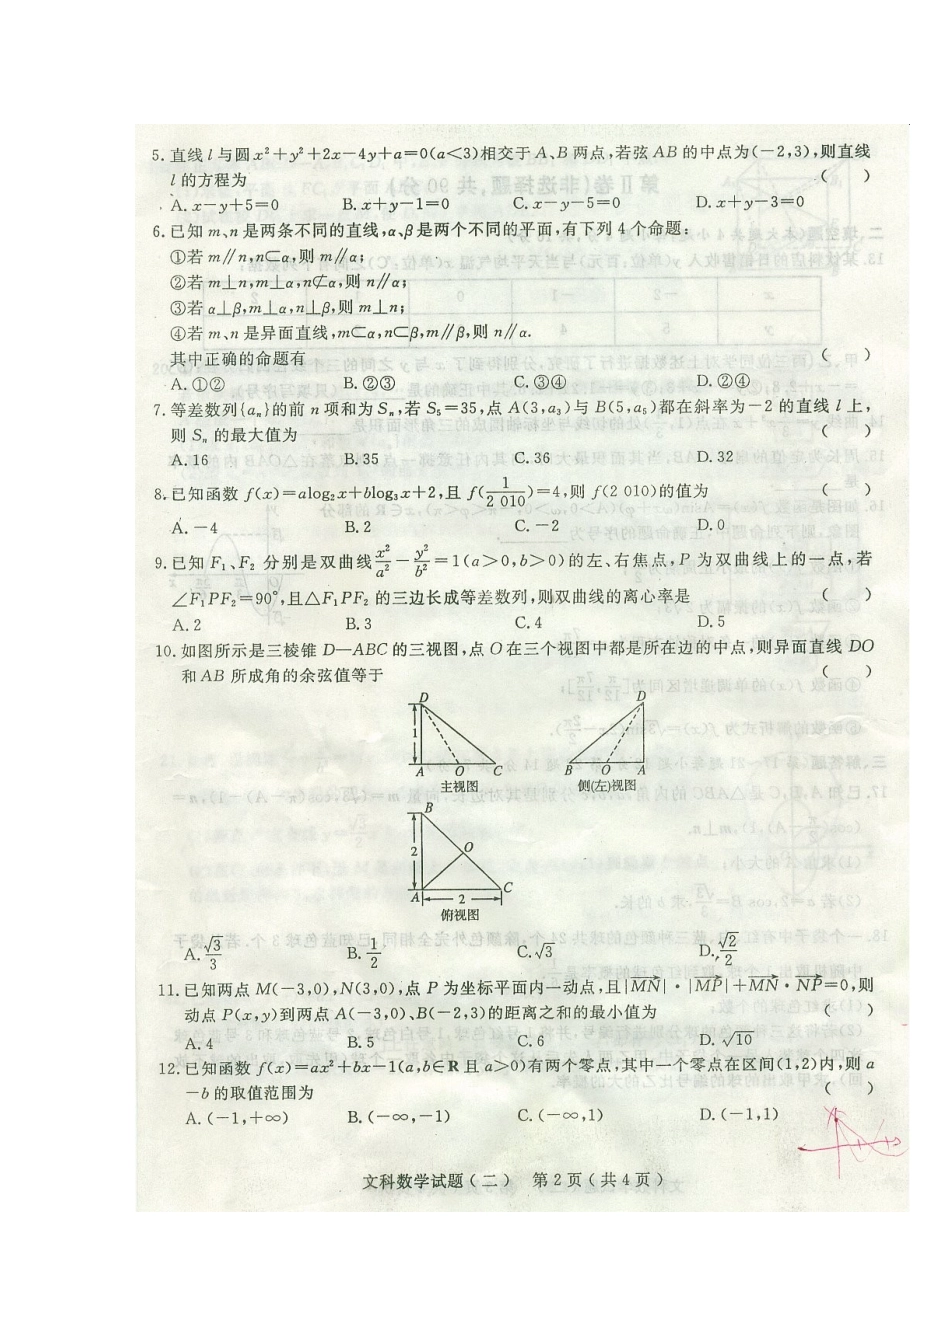 5. 直线 l 与圆 x²+y²+2x−4y+a=0(a<3)相交于 A、B 两点,若弦 AB 的中点为(−2,3),则直线
l 的方程为 (　　)
A. x−y+5=0　B. x+y−1=0　C. x−y−5=0　D. x+y−3=0
6. 已知 m、n 是两条不同的直线,α、β 是两个不同的平面,有下列 4 个命题:
①若 m∥n,n⊂α,则 m∥α;
②若 m⊥n,m⊥α,n⊄α,则 n∥α;
③若 α⊥β,m⊥α,n⊥β,则 m⊥n;
④若 m、n 是异面直线,m⊂α,n⊂β,m∥β,则 n∥α.
其中正确的命题有 (　　)
A. ①②　B. ②③　C. ③④　D. ②④
7. 等差数列{aₙ}的前 n 项和为 Sₙ,若 S₅=35,点 A(3,a₃)与 B(5,a₅)都在斜率为−2 的直线 l 上,
则 Sₙ 的最大值为 (　　)
A. 16　B. 35　C. 36　D. 32
8. 已知函数 f(x)=alog₂x+blog₃x+2,且 f(1/2 010)=4,则 f(2 010)的值为 (　　)
A. −4　B. 2　C. −2　D. 0
9. 已知 F₁、F₂ 分别是双曲线 x²/a²−y²/b²=1(a>0,b>0)的左、右焦点,P 为双曲线上的一点,若
∠F₁PF₂=90°,且△F₁PF₂ 的三边长成等差数列,则双曲线的离心率是 (　　)
A. 2　B. 3　C. 4　D. 5
10. 如图所示是三棱锥 D—ABC 的三视图,点 O 在三个视图中都是所在边的中点,则异面直线 DO
和 AB 所成角的余弦值等于 (　　)
D　D
1
A　O　C　B　O　A
主视图　侧(左)视图
B
2　O
A　2　C
俯视图
A. √3/3　B. 1/2　C. √3　D. √2/2
11. 已知两点 M(−3,0),N(3,0),点 P 为坐标平面内一动点,且|MN→|·|MP→|+MN→·NP→=0,则
动点 P(x,y)到两点 A(−3,0)、B(−2,3)的距离之和的最小值为 (　　)
A. 4　B. 5　C. 6　D. √10
12. 已知函数 f(x)=ax²+bx−1(a,b∈R 且 a>0)有两个零点,其中一个零点在区间(1,2)内,则 a
−b 的取值范围为 (　　)
A. (−1,+∞)　B. (−∞,−1)　C. (−∞,1)　D. (−1,1)
文科数学试题(二)　第 2 页(共 4 页)